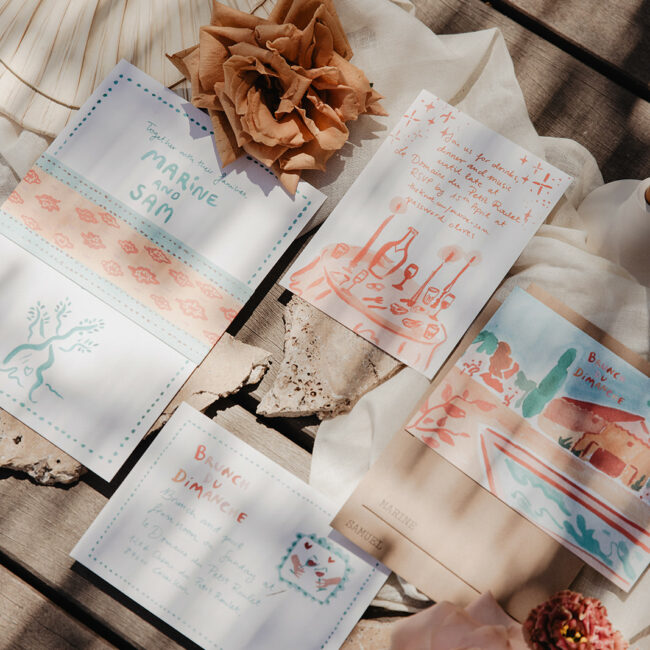 Together with their families
MARINE
AND
SAM
Join us for drinks,
dinner and music
until late at
Le Domaine du Petit Roulet
RSVP by 15th April at
password olives
BRUNCH
DU
DIMANCHE
Brunch and pool
from noon on Sunday at
le Domaine du Petit Roulet
BRUNCH
DU
DIMANCHE
MARINE
SAMUEL